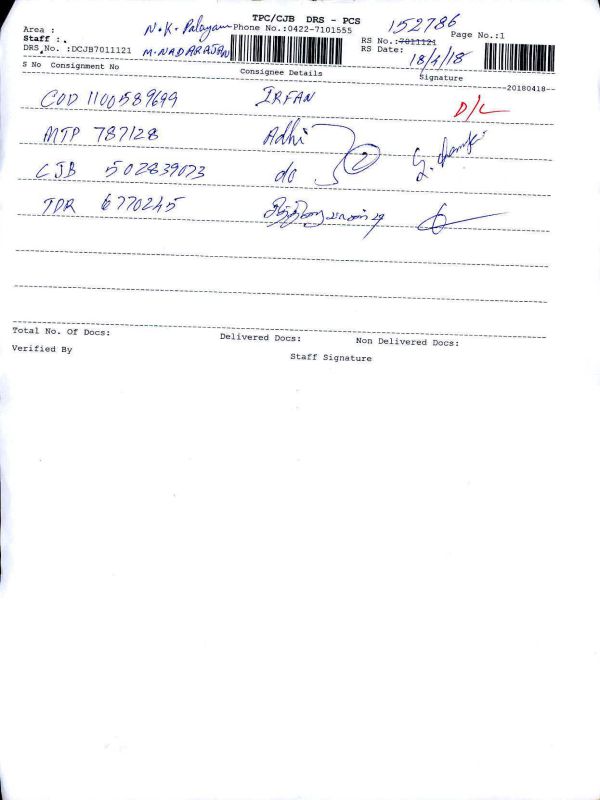 TPC/CJB DRS - PCS
152786
Area : N.K. Palayam Phone No.:0422-7101555 RS No.:7011121 Page No.:1
Staff :. M. NADARAJAN RS Date: 18/4/18
DRS No. :DCJB7011121
S No Consignment No Consignee Details Signature
--20180418--
COD 1100589699 IRFAN D/L
MTP 787128 Adhi
CJB 502839073 do 2
TDR 6770245
Total No. Of Docs: Delivered Docs: Non Delivered Docs:
Verified By Staff Signature